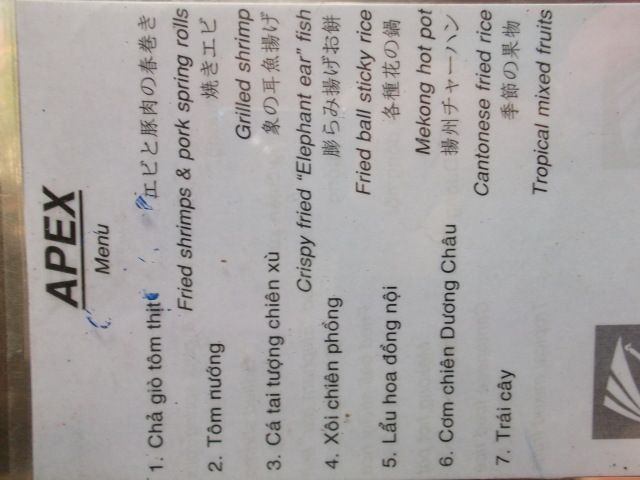 APEX
Menu
1. Chả giò tôm thịt エビと豚肉の春巻き
Fried shrimps & pork spring rolls
2. Tôm nướng 焼きエビ
Grilled shrimp
3. Cá tai tượng chiên xù 象の耳魚揚げ
Crispy fried "Elephant ear" fish
4. Xôi chiên phồng 膨らみ揚げお餅
Fried ball sticky rice
5. Lẩu hoa đồng nội 各種花の鍋
Mekong hot pot
6. Cơm chiên Dương Châu 揚州チャーハン
Cantonese fried rice
7. Trái cây 季節の果物
Tropical mixed fruits